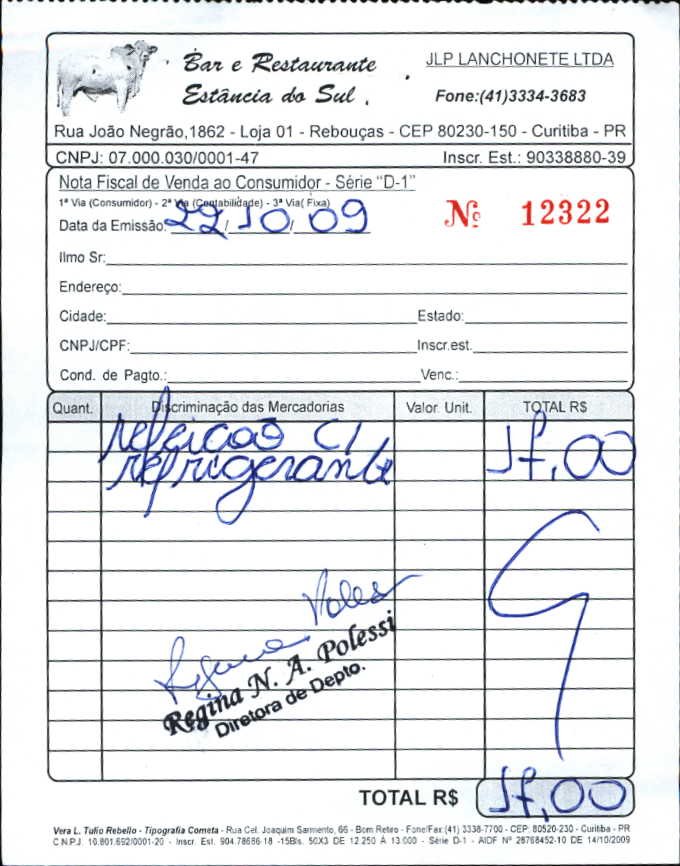 Bar e Restaurante
Estância do Sul
JLP LANCHONETE LTDA
Fone:(41)3334-3683
Rua João Negrão,1862 - Loja 01 - Rebouças - CEP 80230-150 - Curitiba - PR
CNPJ: 07.000.030/0001-47 Inscr. Est.: 90338880-39
Nota Fiscal de Venda ao Consumidor - Série "D-1"
1ª Via (Consumidor) - 2ª Via (Contabilidade) - 3ª Via( Fixa)
Nº 12322
Data da Emissão: 22/10/09
Ilmo Sr:
Endereço:
Cidade: Estado:
CNPJ/CPF: Inscr.est.
Cond. de Pagto.: Venc.:
Quant. Discriminação das Mercadorias Valor. Unit. TOTAL R$
refeicao c/
refrigerante 17,00
Regina N. A. Polessi
Diretora de Depto.
TOTAL R$ 17,00
Vera L. Tulio Rebello - Tipografia Cometa - Rua Cel. Joaquim Sarmento, 66 - Bom Retiro - Fone/Fax:(41) 3338-7700 - CEP: 80520-230 - Curitiba - PR
C.N.P.J. 10.801.692/0001-20 - Inscr. Est. 904.78686-18 -15Bls. 50X3 DE 12.250 À 13.000 - Série D-1 - AIDF Nº 28768452-10 DE 14/10/2009